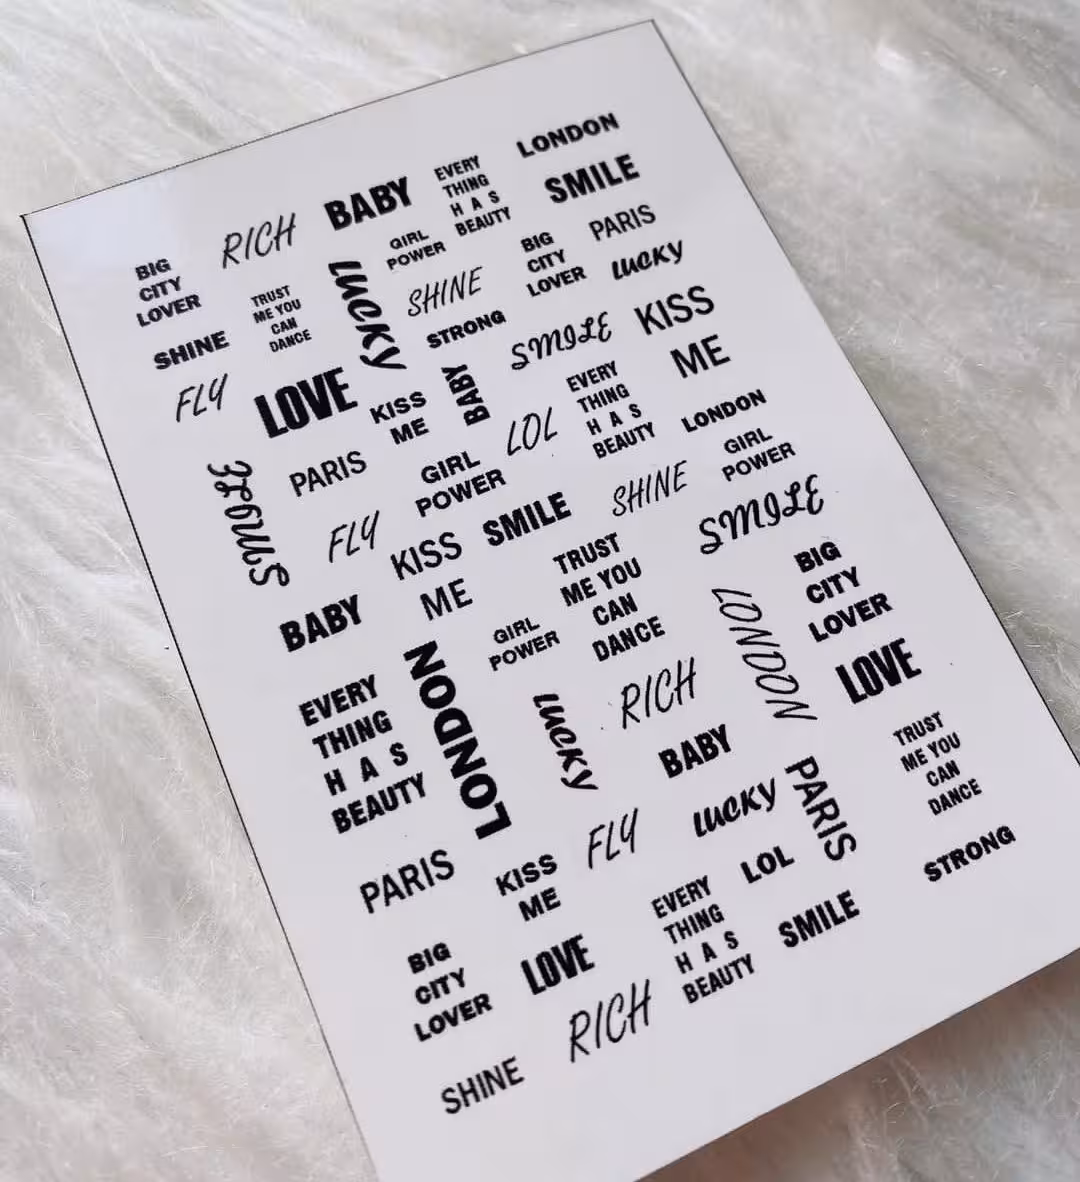 LONDON
EVERY
THING
H A S
BEAUTY
SMILE
BABY
RICH
GIRL
POWER
PARIS
BIG
CITY
LOVER
BIG
CITY
LOVER
LUCKY
TRUST
ME YOU
CAN
DANCE
LUCKY
SHINE
SHINE
STRONG
SMILE
KISS
ME
FLY
LOVE
KISS
ME
BABY
EVERY
THING
H A S
BEAUTY
LOL
LONDON
SMILE
PARIS
GIRL
POWER
GIRL
POWER
FLY
KISS
ME
SMILE
SHINE
SMILE
TRUST
ME YOU
CAN
DANCE
BIG
CITY
LOVER
BABY
GIRL
POWER
LONDON
LONDON
LOVE
EVERY
THING
H A S
BEAUTY
LUCKY
RICH
BABY
TRUST
ME YOU
CAN
DANCE
PARIS
FLY
LUCKY
PARIS
KISS
ME
LOL
STRONG
EVERY
THING
H A S
BEAUTY
SMILE
BIG
CITY
LOVER
LOVE
RICH
SHINE